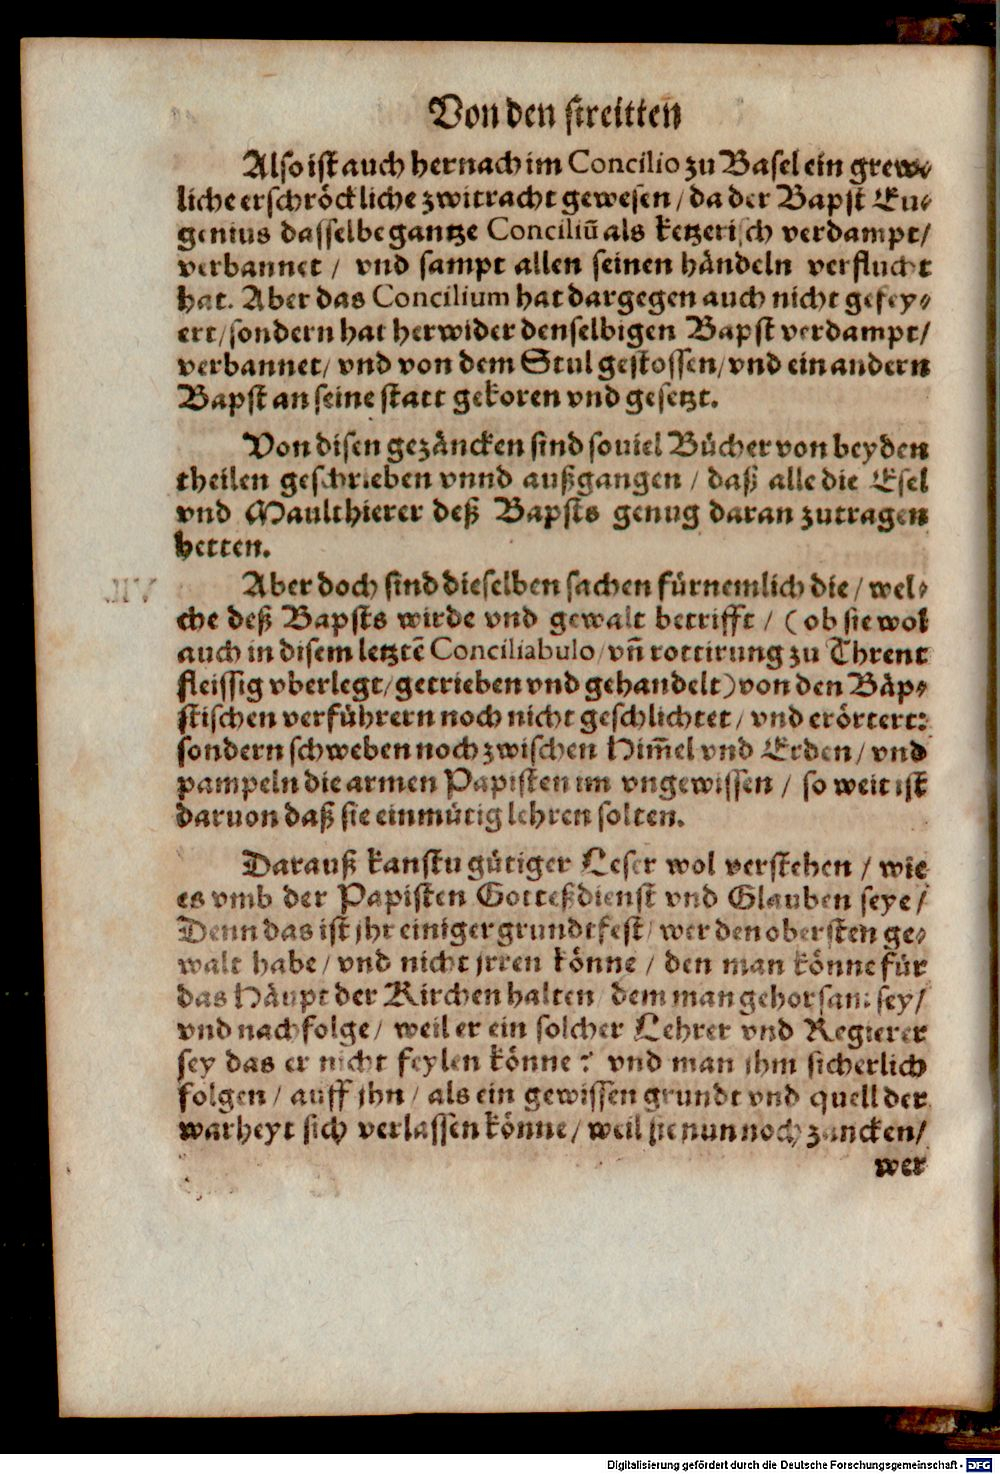 Von den streitten
Also ist auch hernach im Concilio zu Basel ein grew⸗
liche erschröckliche zwitracht gewesen / da der Bapst Eu⸗
genius dasselbe gantze Conciliũ als ketzerisch verdampt/
verbannet / vnd sampt allen seinen händeln verflucht
hat. Aber das Concilium hat dargegen auch nicht gefey⸗
ert/sondern hat herwider denselbigen Bapst verdampt/
verbannet/ vnd von dem Stul gestossen/vnd ein andern
Bapst an seine statt gekoren vnd gesetzt.
Von disen gezäncken sind souiel Bücher von beyden
theilen geschrieben vnnd außgangen / daß alle die Esel
vnd Maulthierer deß Bapsts genug daran zutragen
hetten.
Aber doch sind dieselben sachen fürnemlich die / wel⸗
che deß Bapsts wirde vnd gewalt betrifft / ( ob sie wol
auch in disem letztẽ Conciliabulo/vñ rottirung zu Thrent
fleissig vberlegt/getrieben vnd gehandelt) von den Bäp⸗
stischen verführern noch nicht geschlichtet/ vnd erörtert:
sondern schweben noch zwischen Him̃el vnd Erden/ vnd
pampeln die armen Papisten im vngewissen / so weit ist
daruon daß sie einmütig lehren solten.
Darauß kanstu gütiger Leser wol verstehen / wie
es vmb der Papisten Gotteßdienst vnd Glauben seye/
Denn das ist jhr einiger grundtfest/ wer den obersten ge⸗
walt habe/ vnd nicht jrren könne / den man könne für
das Häupt der Kirchen halten/ dem man gehorsam sey/
vnd nachfolge/ weil er ein solcher Lehrer vnd Regierer
sey das er nicht feylen könne: vnd man jhm sicherlich
folgen / auff jhn / als ein gewissen grundt vnd quell der
warheyt sich verlassen könne/ weil sie nun noch zancken/
wer
Digitalisierung gefördert durch die Deutsche Forschungsgemeinschaft - DFG